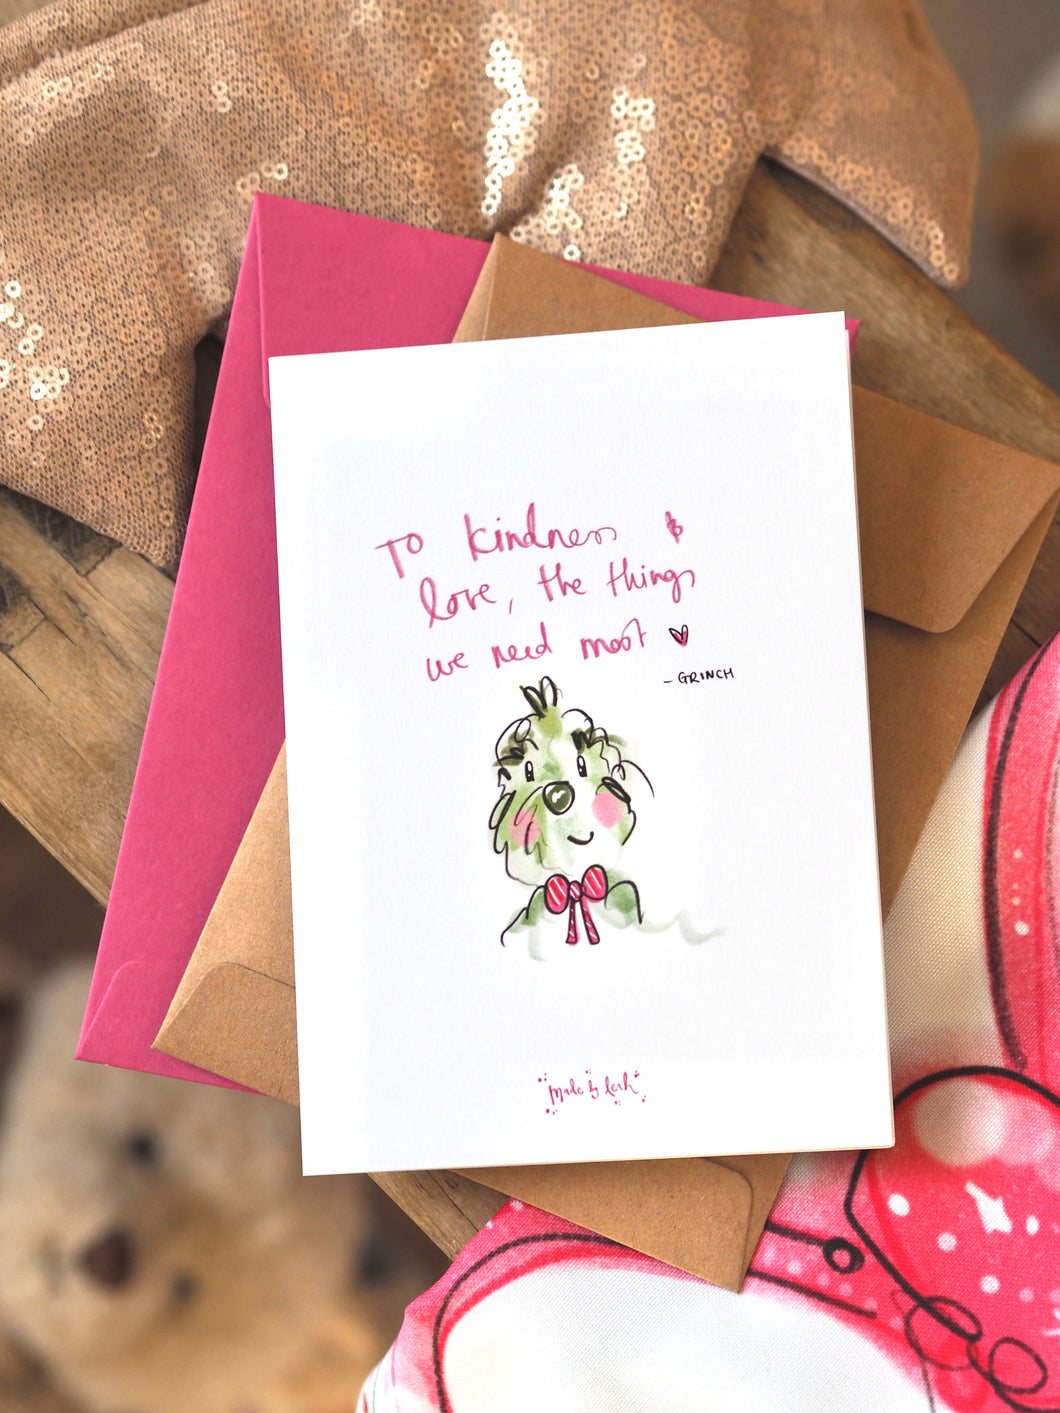 To kindness &
love, the things
we need most
- GRINCH
made by leah